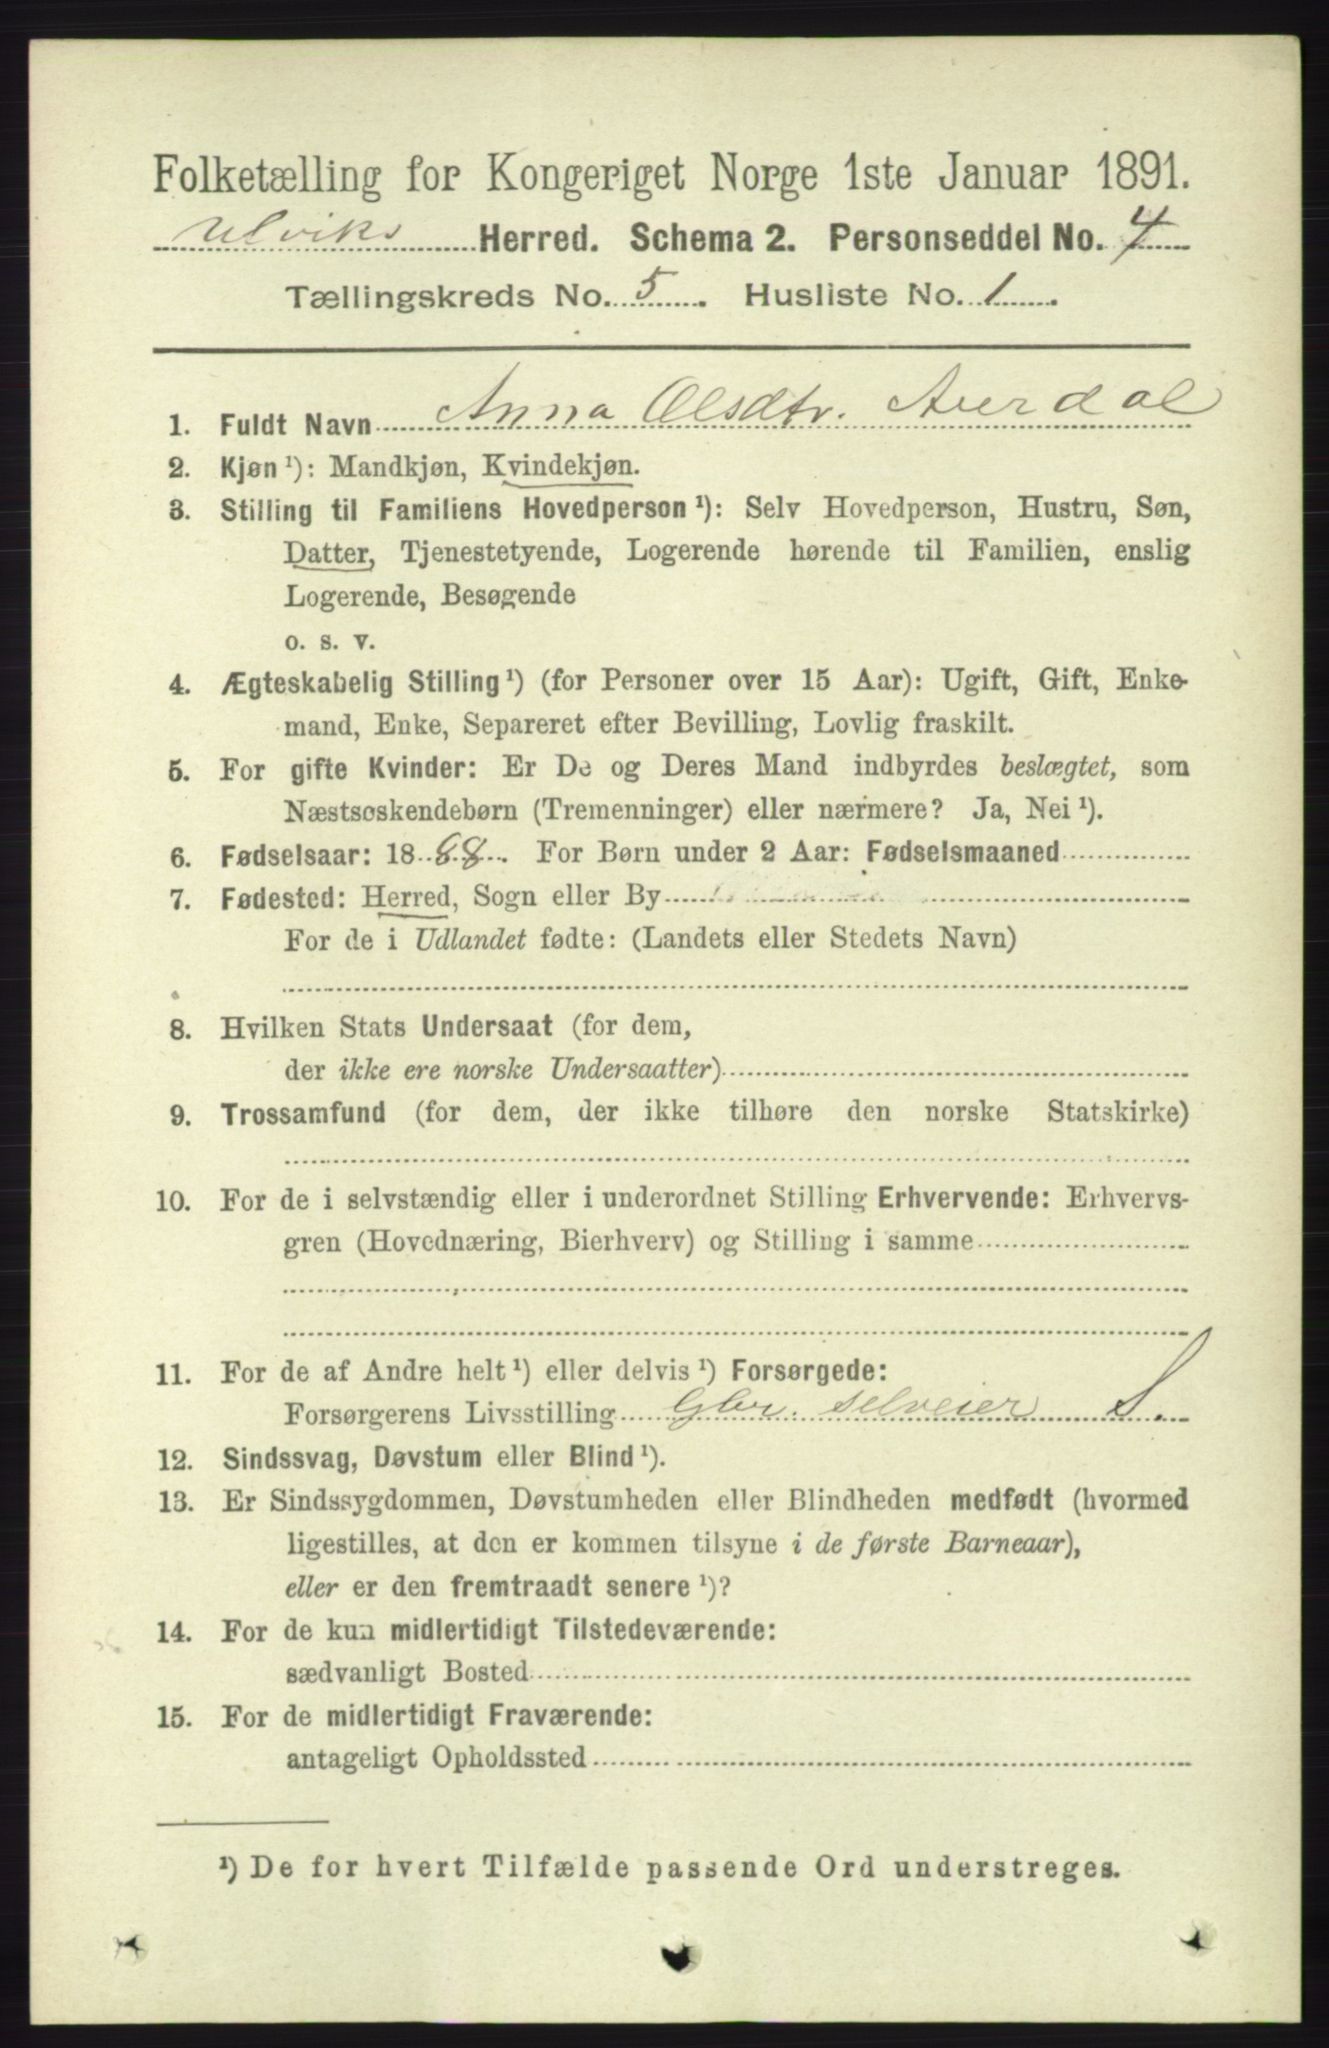 Folketælling for Kongeriget Norge 1ste Januar 1891.
Ulviks Herred. Schema 2. Personseddel No. 4
Tællingskreds No. 5. Husliste No. 1.
1. Fuldt Navn Anna Olsdtr. Aurdal
2. Kjøn ¹): Mandkjøn, Kvindekjøn.
3. Stilling til Familiens Hovedperson ¹): Selv Hovedperson, Hustru, Søn,
Datter, Tjenestetyende, Logerende hørende til Familien, enslig
Logerende, Besøgende
o. s. v.
4. Ægteskabelig Stilling ¹) (for Personer over 15 Aar): Ugift, Gift, Enke-
mand, Enke, Separeret efter Bevilling, Lovlig fraskilt.
5. For gifte Kvinder: Er De og Deres Mand indbyrdes beslægtet, som
Næstsøskendebørn (Tremenninger) eller nærmere? Ja, Nei ¹).
6. Fødselsaar: 1888. For Børn under 2 Aar: Fødselsmaaned
7. Fødested: Herred, Sogn eller By
For de i Udlandet fødte: (Landets eller Stedets Navn)
8. Hvilken Stats Undersaat (for dem,
der ikke ere norske Undersaatter)
9. Trossamfund (for dem, der ikke tilhøre den norske Statskirke)
10. For de i selvstændig eller i underordnet Stilling Erhvervende: Erhvervs-
gren (Hovednæring, Bierhverv) og Stilling i samme
11. For de af Andre helt ¹) eller delvis ¹) Forsørgede:
Forsørgerens Livsstilling Gbr. selveier S.
12. Sindssvag, Døvstum eller Blind ¹).
13. Er Sindssygdommen, Døvstumheden eller Blindheden medfødt (hvormed
ligestilles, at den er kommen tilsyne i de første Barneaar),
eller er den fremtraadt senere ¹)?
14. For de kun midlertidigt Tilstedeværende:
sædvanligt Bosted
15. For de midlertidigt Fraværende:
antageligt Opholdssted
¹) De for hvert Tilfælde passende Ord understreges.